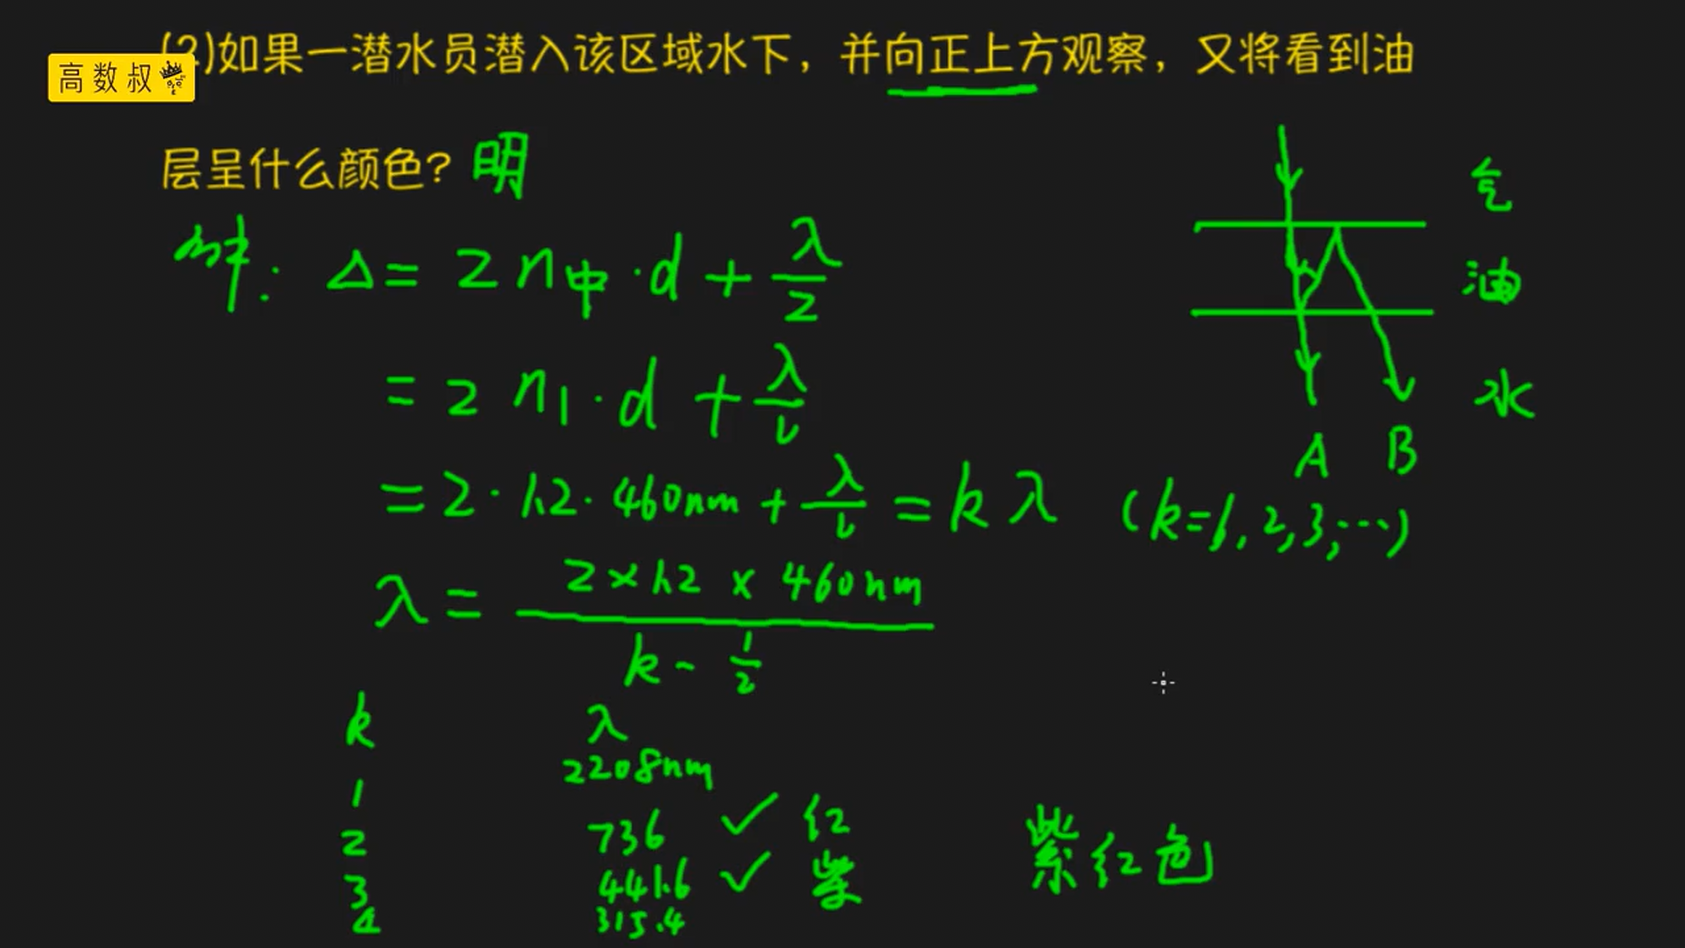 (2)如果一潜水员潜入该区域水下，并向正上方观察，又将看到油
高数叔
层呈什么颜色? 明
解: Δ = 2 n中 · d + λ/2
= 2 n1 · d + λ/2
= 2 · 1.2 · 460nm + λ/2 = k λ (k=1, 2, 3, ···)
λ = 2 × 1.2 × 460nm / k - 1/2
k λ
1 2208nm
2 736 ✓ 红
3 441.6 ✓ 紫
4 315.4
紫红色
气
油
水
A B